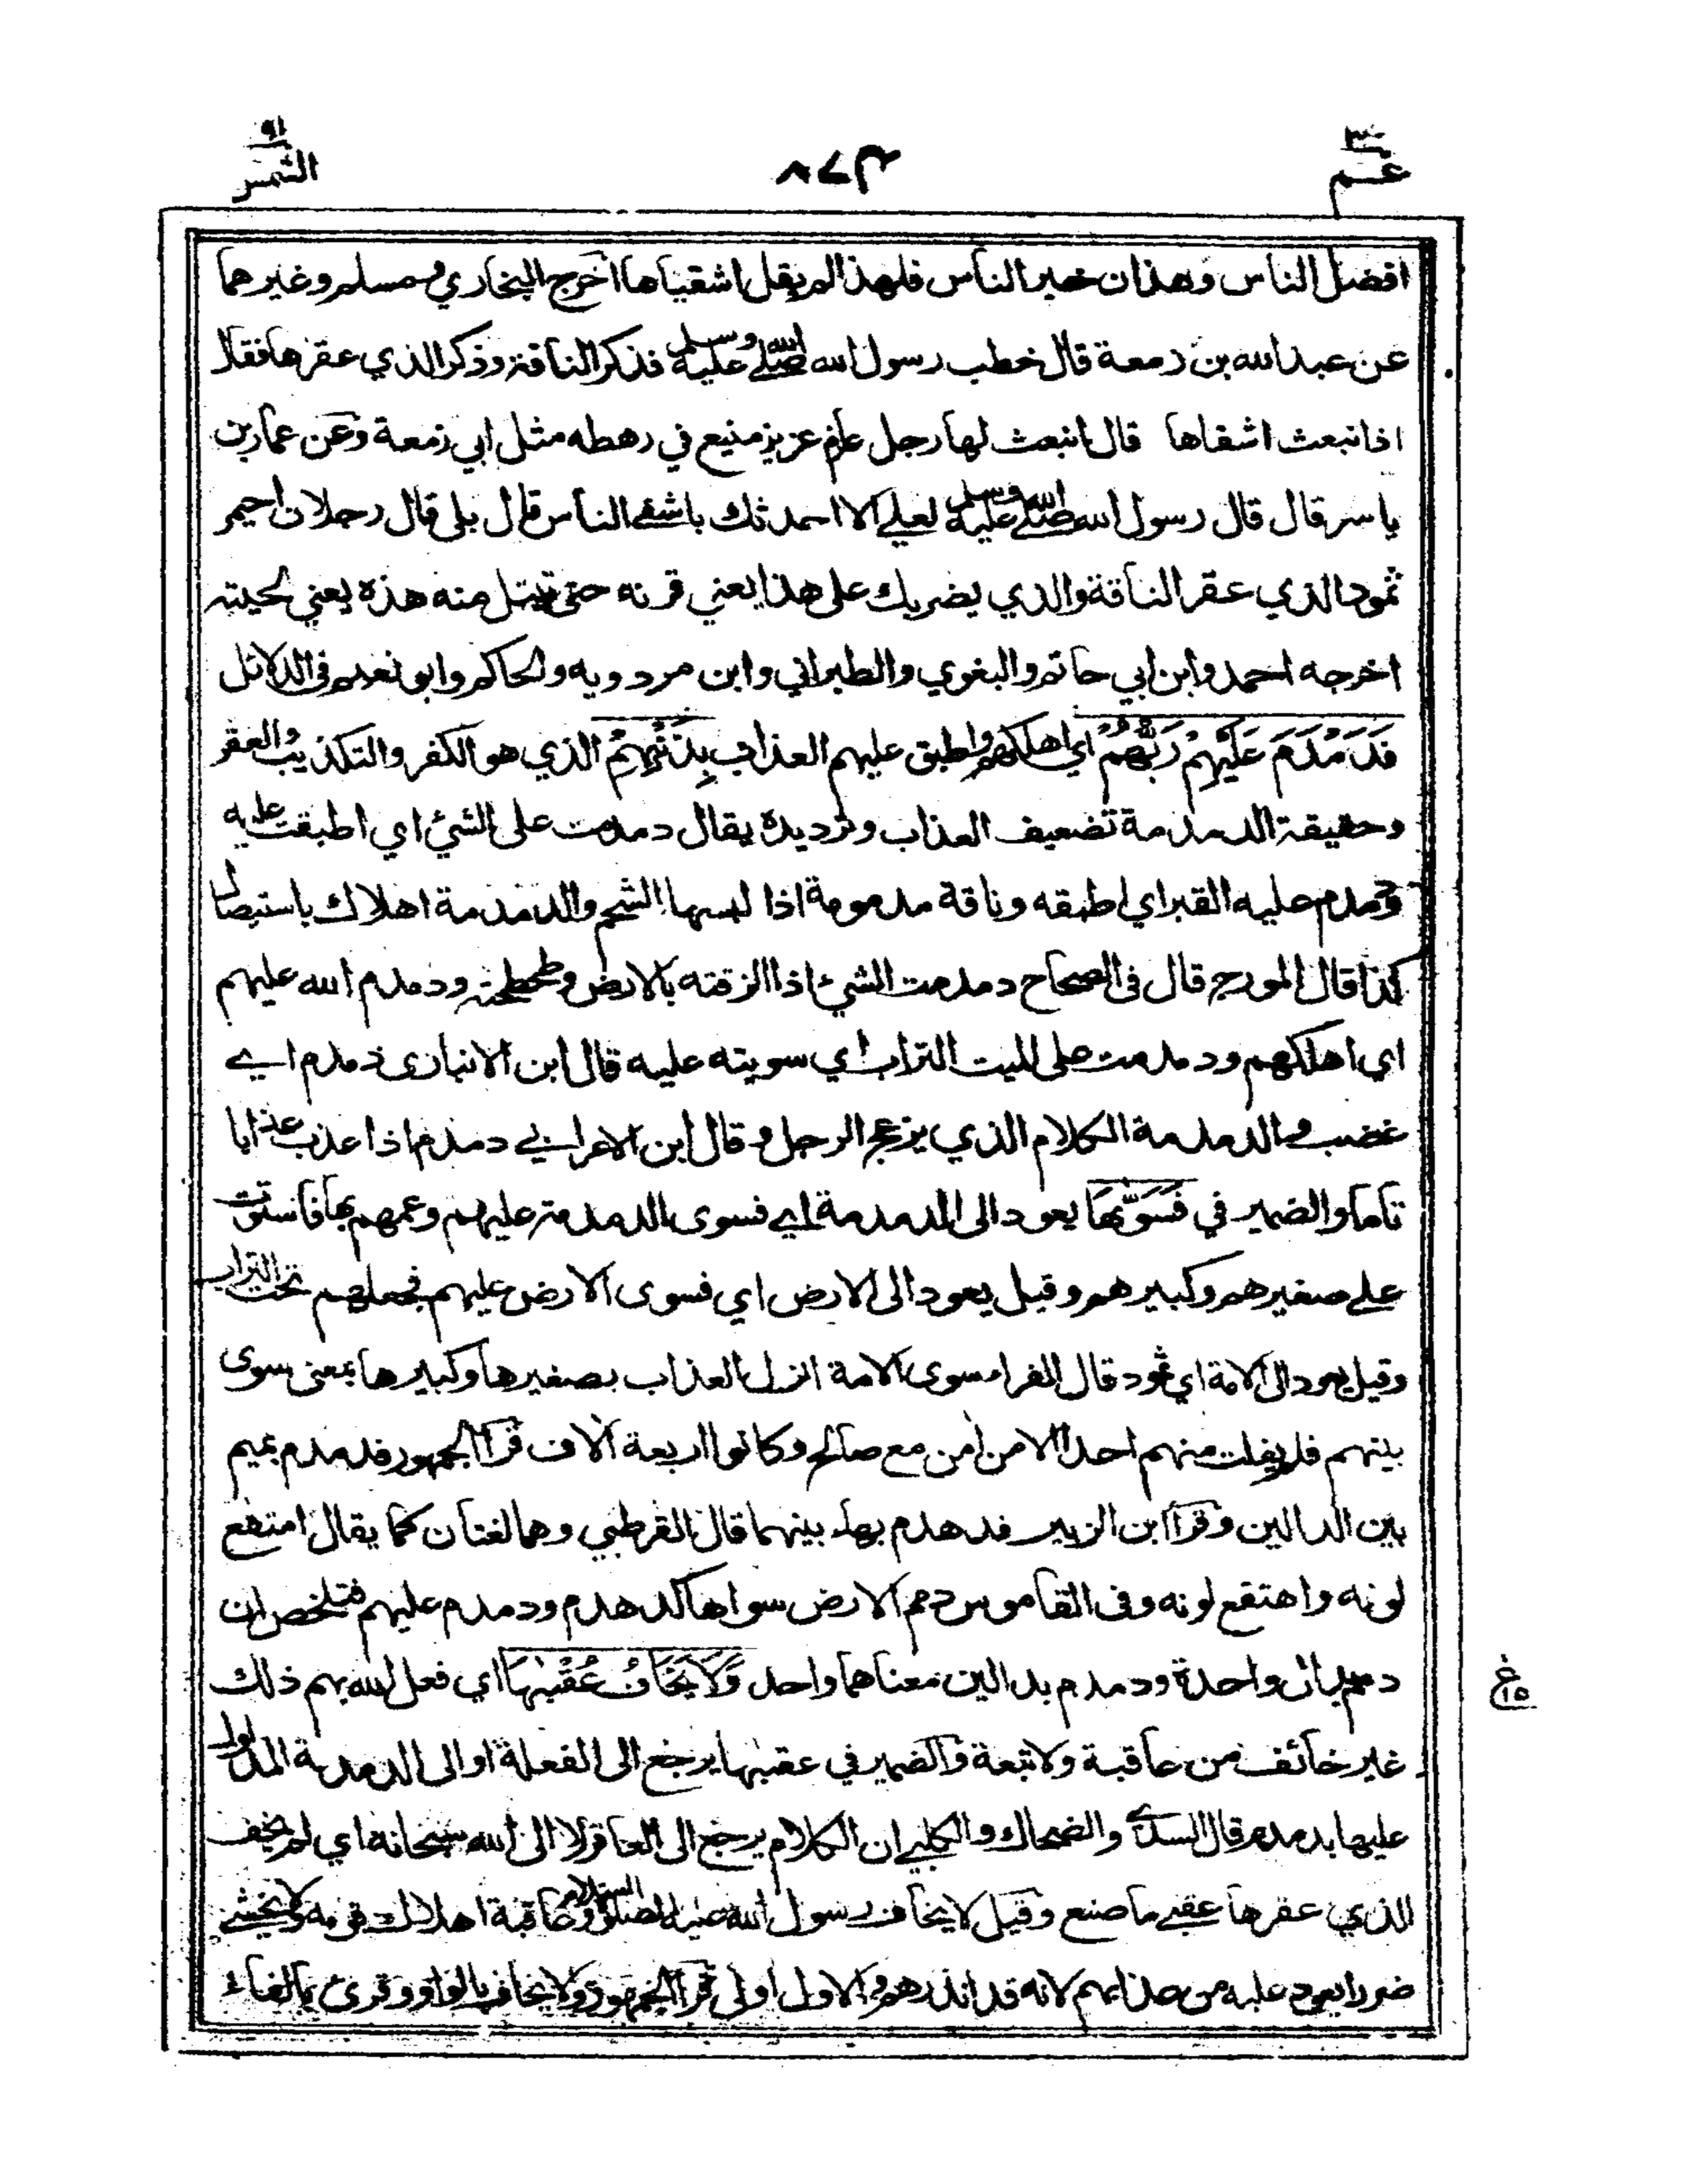 ٣٠
عم
٤٧٨
٩١
الشمس
افضل الناس وهذان خير الناس فلهذا لم يقل اشقياها اخرج البخاري ومسلم وغيرهما
عن عبد الله بن زمعة قال خطب رسول الله صلى الله عليه وسلم فذكر الناقة وذكر الذي عقرها فقال
اذ انبعث اشقاها قال انبعث لها رجل عارم عزيز منيع في رهطه مثل ابي زمعة وعن عمار بن
ياسر قال قال رسول الله صلى الله عليه وسلم لعلي الا احدثك باشقى الناس قال بلى قال رجلان احيمر
ثمود الذي عقر الناقة والذي يضربك على هذا يعني قرنه حتى تبتل منه هذه يعني لحيته
اخرجه احمد وابن ابي حاتم والبغوي والطبراني وابن مردويه والحاكم وابو نعيم في الدلائل
فَدَمْدَمَ عَلَيْهِمْ رَبُّهُمْ اي اهلكهم واطبق عليهم العذاب بِذَنْبِهِمْ الذي هو الكفر والتكذيب والعقر
وحقيقة الدمدمة تضعيف العذاب وترديده يقال دمدمت على الشيء اي اطبقت عليه
ودمدم عليه القبر اي اطبقه وناقة مدمومة اذا لبسها الشحم والدمدمة اهلاك باستيصال
كذا قال المورج قال في الصحاح دمدمت الشيء اذا الزقته بالارض وطحطحته ودمدم الله عليهم
اي اهلكهم ودمدمت على الميت التراب اي سويته عليه قال ابن الانباري دمدم اي
غضب والدمدمة الكلام الذي يزعج الرجل وقال ابن الاعرابي دمدم اذا عذب عذابا
تاما والضمير في فَسَوّٰىهَا يعود الى الدمدمة اي فسوى الدمدمة عليهم وعمهم بها فاستوت
على صغيرهم وكبيرهم وقيل يعود الى الارض اي فسوى الارض عليهم فجعلهم تحت التراب
وقيل يعود الى الامة اي ثمود قال الفراء سوى الامة انزل العذاب بصغيرها وكبيرها بمعنى سوى
بينهم فلم يفلت منهم احد الا من امن مع صالح وكانوا اربعة الاف قرأ الجمهور فدمدم بميم
بين الدالين وقرأ ابن الزبير فدهدم بهاء بينهما قال القرطبي وهما لغتان كما يقال امتقع
لونه واهتقع لونه وفي القاموس دمم الارض سواها كدهدم ودمدم عليهم فتلخص ان
دمم بدال واحدة ودمدم بدالين معناهما واحد وَلَا يَخَافُ عُقْبٰهَا اي فعل الله بهم ذلك
غير خائف من عاقبة ولا تبعة والضمير في عقبها يرجع الى الفعلة او الى الدمدمة المدلول
عليها بدمدم قال السدي والضحاك والكلبي ان الكلام يرجع الى العاقر لا الى الله سبحانه اي لم يخف
الذي عقرها عقبى ما صنع وقيل لا يخاف رسول الله عليه الصلوة والسلام عاقبة اهلاك قومه ولا يخشى
ضررا يعود عليه من عذابهم لانه قد انذرهم والاول اولى قرأ الجمهور ولا يخاف بالواو وقرئ بالفاء
ع
١٥